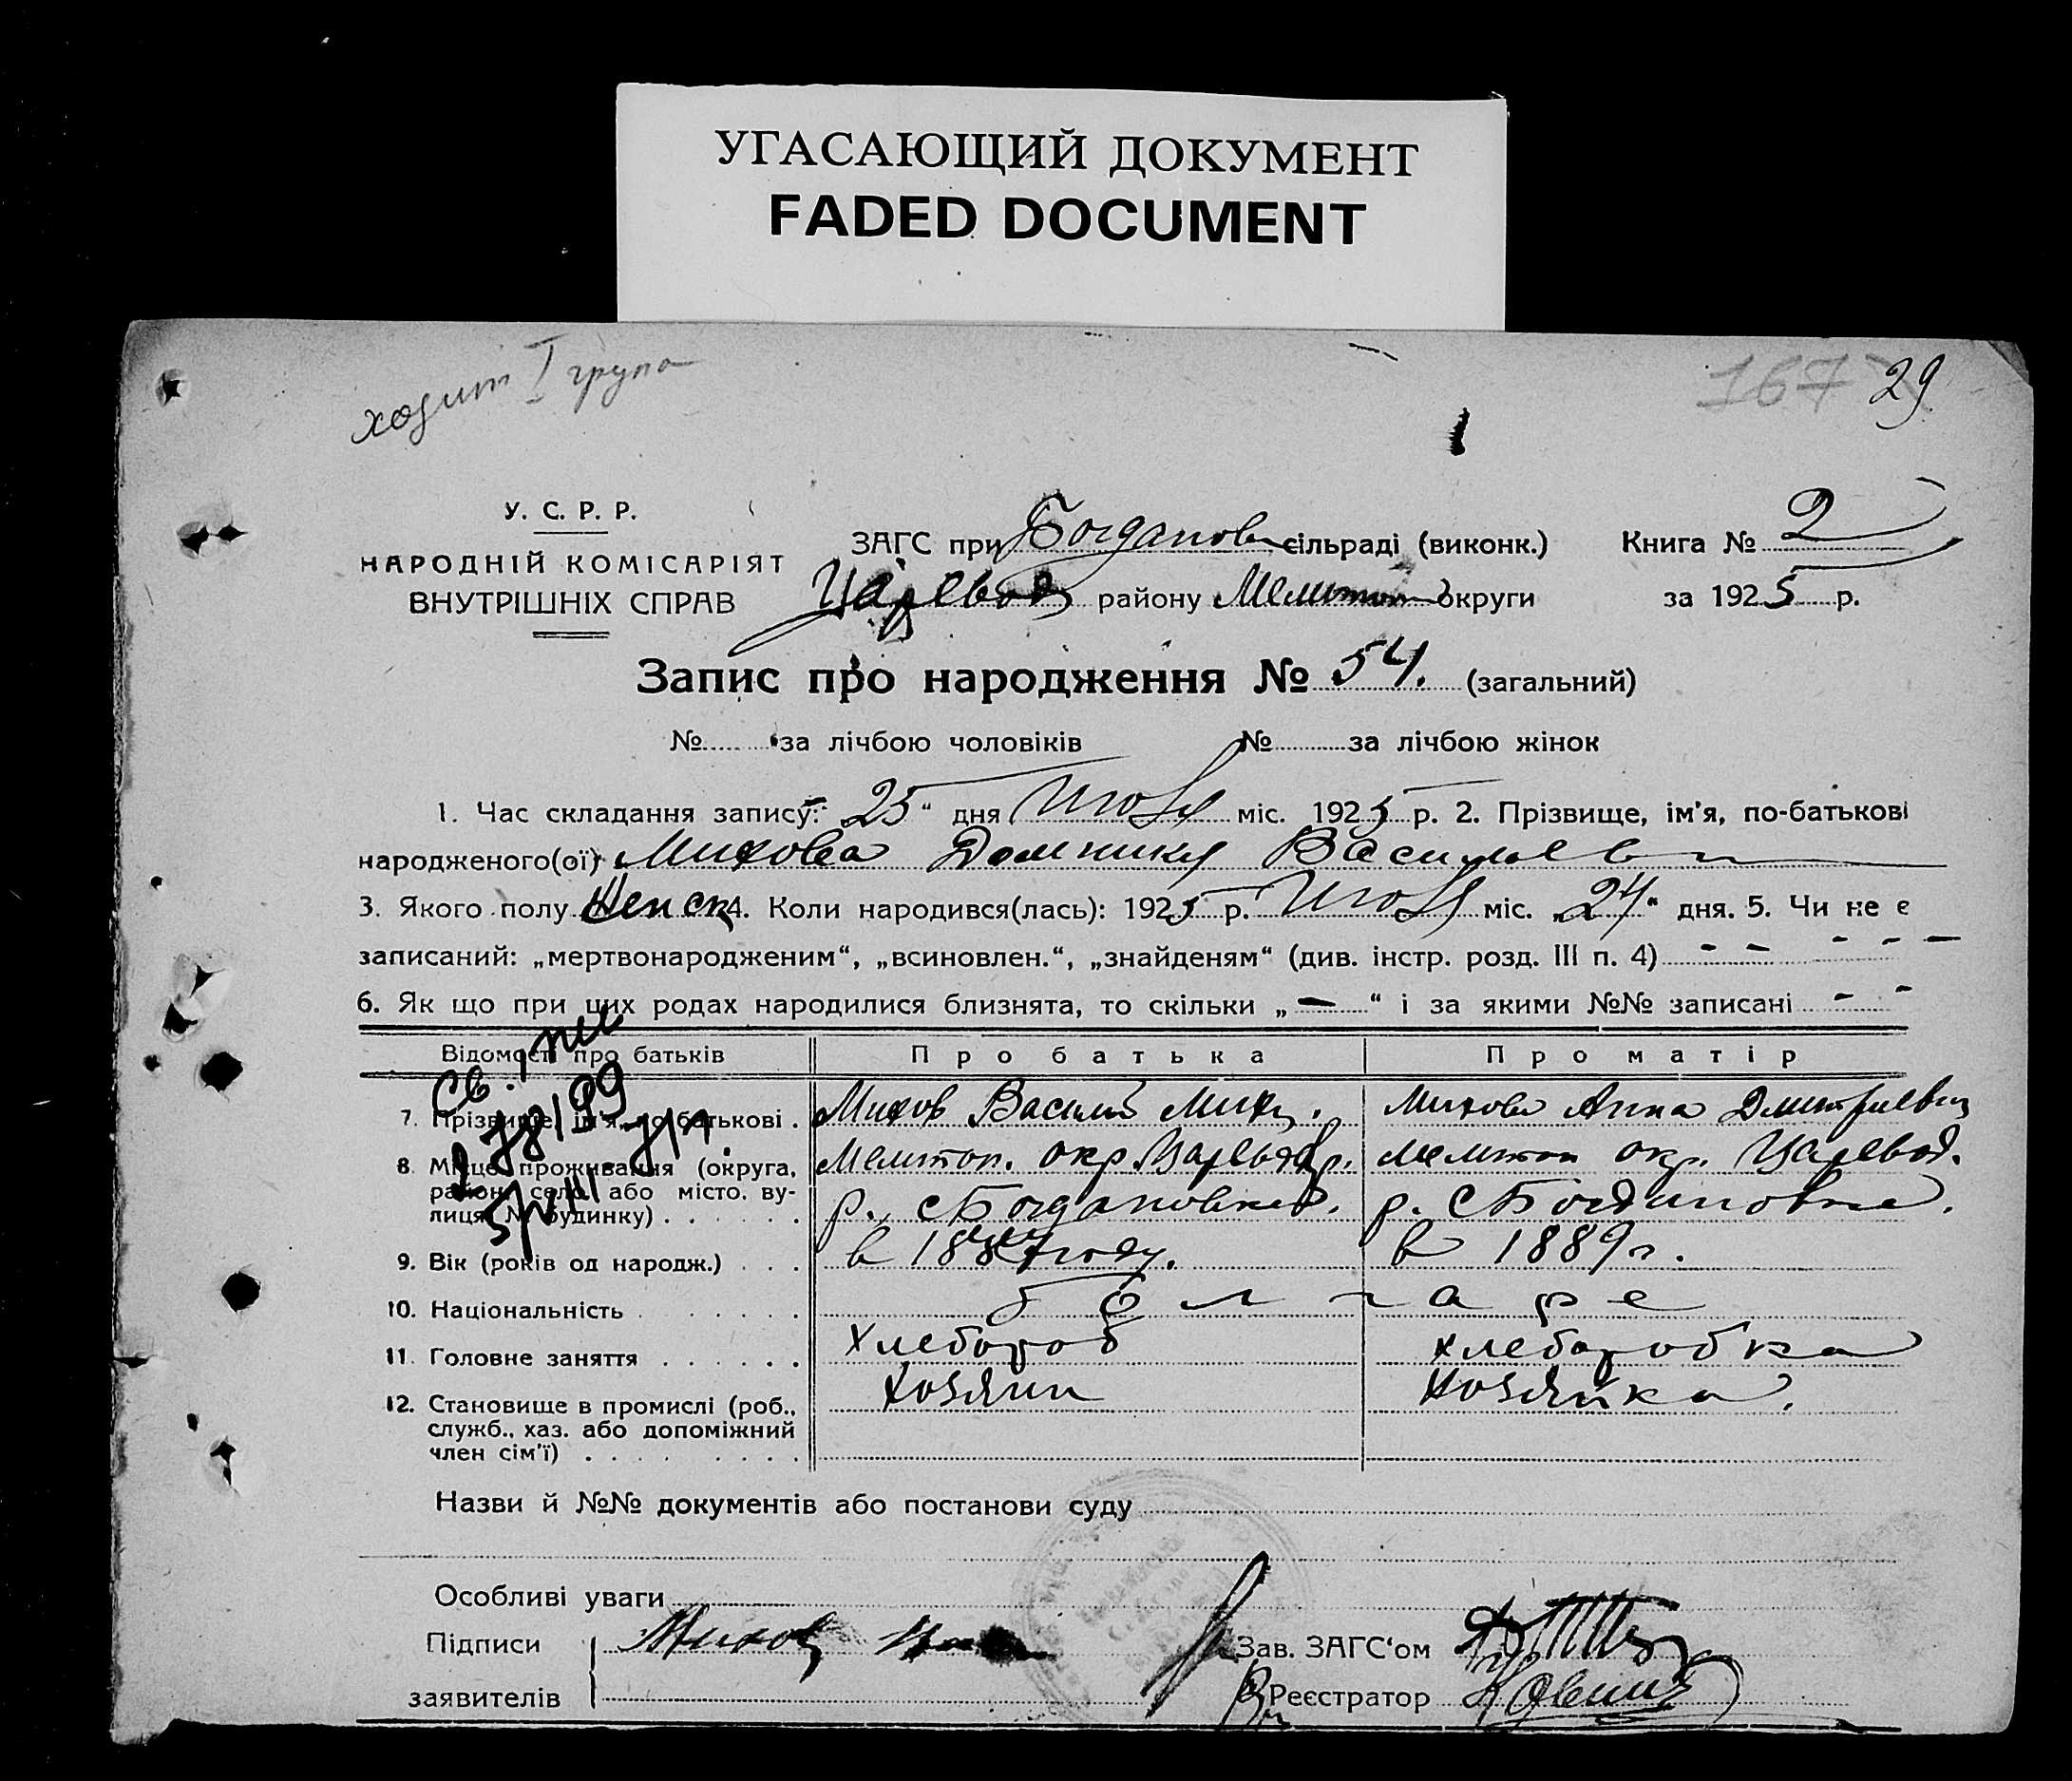 УГАСАЮЩИЙ ДОКУМЕНТ
FADED DOCUMENT
ходит I група
167 29
У. С. Р. Р.
НАРОДНІЙ КОМІСАРІЯТ
ВНУТРІШНІХ СПРАВ
ЗАГС при Богданов сільраді (виконк.) Книга № 2
Царевод району Мелитоп округи за 1925 р.
Запис про народження № 54. (загальний)
№ за лічбою чоловіків № за лічбою жінок
1. Час складання запису: 25 “ дня міс. 1925 р. 2. Прізвище, ім'я, по-батькові
народженого(ої) Митова Домникия Васильев
3. Якого полу Женск 4. Коли народився(лась): 1925 р. міс. „24“ дня. 5. Чи не є
записаний: „мертвонародженим“, „всиновлен.“, „знайденям“ (див. інстр. розд. III п. 4) - -
6. Як що при цих родах народилися близнята, то скільки „—“ і за якими №№ записані - -
Відомості про батьків Про батька Про матір
7. Прізвище, ім'я, по-батькові . Василий Анна Дмитриевна
8. Місце проживання (округа, Мелитоп. окр. Царевод Мелитоп окр. Царевод.
район, село, або місто, ву- р. с Богдановке. р. с Богдановке.
лиця, № будинку) . . . . . .
9. Вік (років од народж.) . . . в году. в 1889 г.
10. Національність . . . . . болгаре
11. Головне заняття . . . . . . хлебороб хлеборобка
12. Становище в промислі (роб., хозяин хозяйка.
служб., хаз. або допоміжний
член сім'ї) . . . . . . . . .
Св.
Назви й №№ документів або постанови суду
Особливі уваги
Підписи Зав. ЗАГС‘ом
заявителів Реєстратор